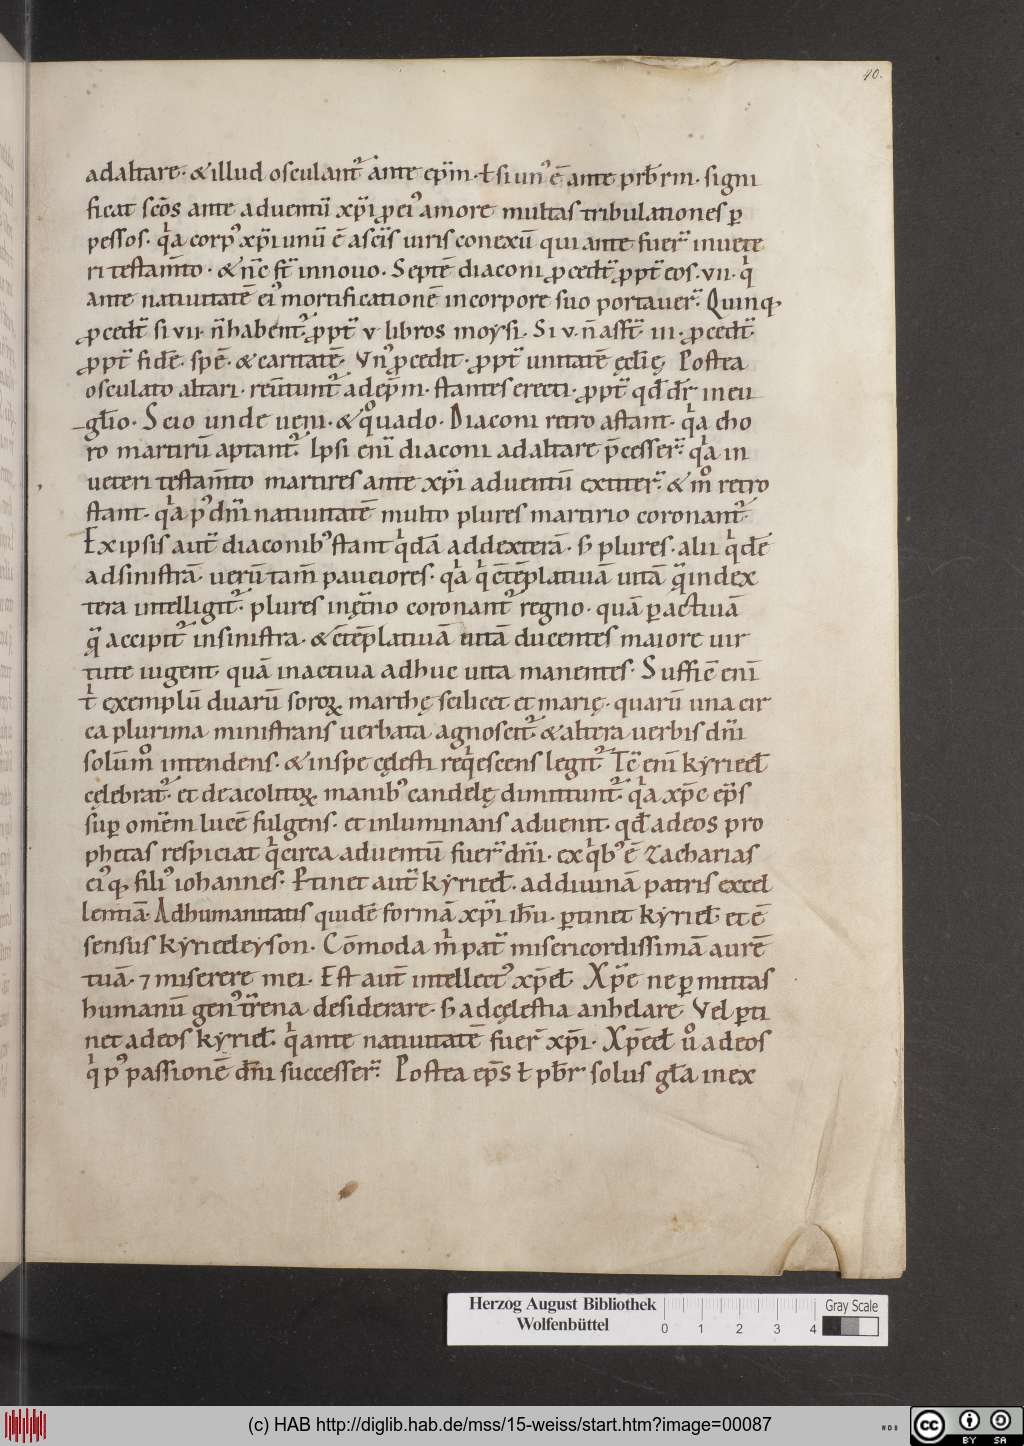 40.
adaltare· & illud osculant᷑ ante ep̄m· ł si un᷒ ē ante prb̄rm· signi
ficat sc̄os ante aduentū xp̄i ꝓ ei᷒ amore multas tribulationes ꝑ
pessos· qͥa corp᷒ xp̄i unū ē ascīs uiris conexū qui ante fuer̄ inuete
ri testam̄to· & n̄c st̄ innouo· Septē diaconi ꝓcedt̄ ꝓpt̄ eos· vii· qͥ
ante natiuitatē ei᷒ mortificationē incorpore suo portauer̄· Quinq;
ꝓcedt̄ si vii· n̄ habent᷑ ꝓpt̄ v libros moysi· Si v· n̄ asst̄ iii· ꝓcedt̄
ꝓpt̄ fidē· spē· & caritatē· Vn᷒ ꝓcedit· ꝓpt̄ unitatē ęcl̄ię Postea
osculato altari· reūtunt᷑ ad ep̄m· stantes erecti· ꝓpt̄ qd̄ dr̄ in eu
gl̄io· Scio unde ueni· & qͦ uado· Diaconi retro astant· qͥa cho
ro martirū aptant᷑· Ipsi enī diaconi adaltare p̄cesser̄· qͥa in
ueteri testam̄to martires ante xp̄i aduentū extiter̄· & mͦ retro
stant· qͥa p᷒ dn̄i natiuitatē multo plures martirio coronant᷑·
Ex ipsis aut̄ diaconib᷒ stant qͥdā addexterā· s; plures· alii qͥdē
adsinistrā· uerūtam̄ pauciores· qͥa qͥ c̄tēplatiuā uitā qͣ̄ index
tera intelligit᷑· plures inęt̄no coronant᷑ regno· quā ꝑ actiuā
qͣ̄ accipit᷑ insinistra· & c̄tēplatiuā uitā ducentes maiore uir
tute uigent· quā inactiua adhuc uita manentes· Suffic̄ enī
tͥ exemplū duarū soroꝝ marthę scilicet et marię· quarū una cir
ca plurima ministrans uerbata agnoscit᷑ & altera uerbis dn̄i
solūmͦ intendens· & inspe cęlesti reqͥescens legit᷑ Tc̄ enī kyrieeł
cęlebrat᷑· et de acolitoꝝ manib᷒ candelę dimittunt᷑· qͥa xp̄c ep̄s
sup̱ om̄em lucē fulgens· et inluminans aduenit· qd̄ adeos pro
phetas respiciat qͥ circa aduentū fuer̄ dn̄i· ex qͥb᷒ ē Zacharias
ei᷒q; fili᷒ iohannes· Ptinet aut̄ kyrieeł· addiuinā patris excel
lentiā· Adhumanitatis quidē formā xp̄i ih̄u· ꝑtinet kyrieł· et ē
sensus kyrieeleyson· Cōmoda m̄ pat̄ misericordissimā aurē
tuā· ⁊ miserere mei· Est aut̄ intellect᷒ xp̄eł· Xp̄e ne ꝑmittas
humanū gen᷒ t̄rena desiderare· s; adcęlestia anhelare· Vel ꝑti
net adeos kyrieł· qͥ ante natiuitatē fuer̄ xp̄i· Xp̄eeł ūͦ adeos
qͥ p᷒ passionē dn̄i successer̄· Postea ep̄s ł pb̄r solus gl̄a inex
Herzog August Bibliothek
Wolfenbüttel
0 1 2 3 4
Gray Scale
(c) HAB http://diglib.hab.de/mss/15-weiss/start.htm?image=00087
cc BY SA